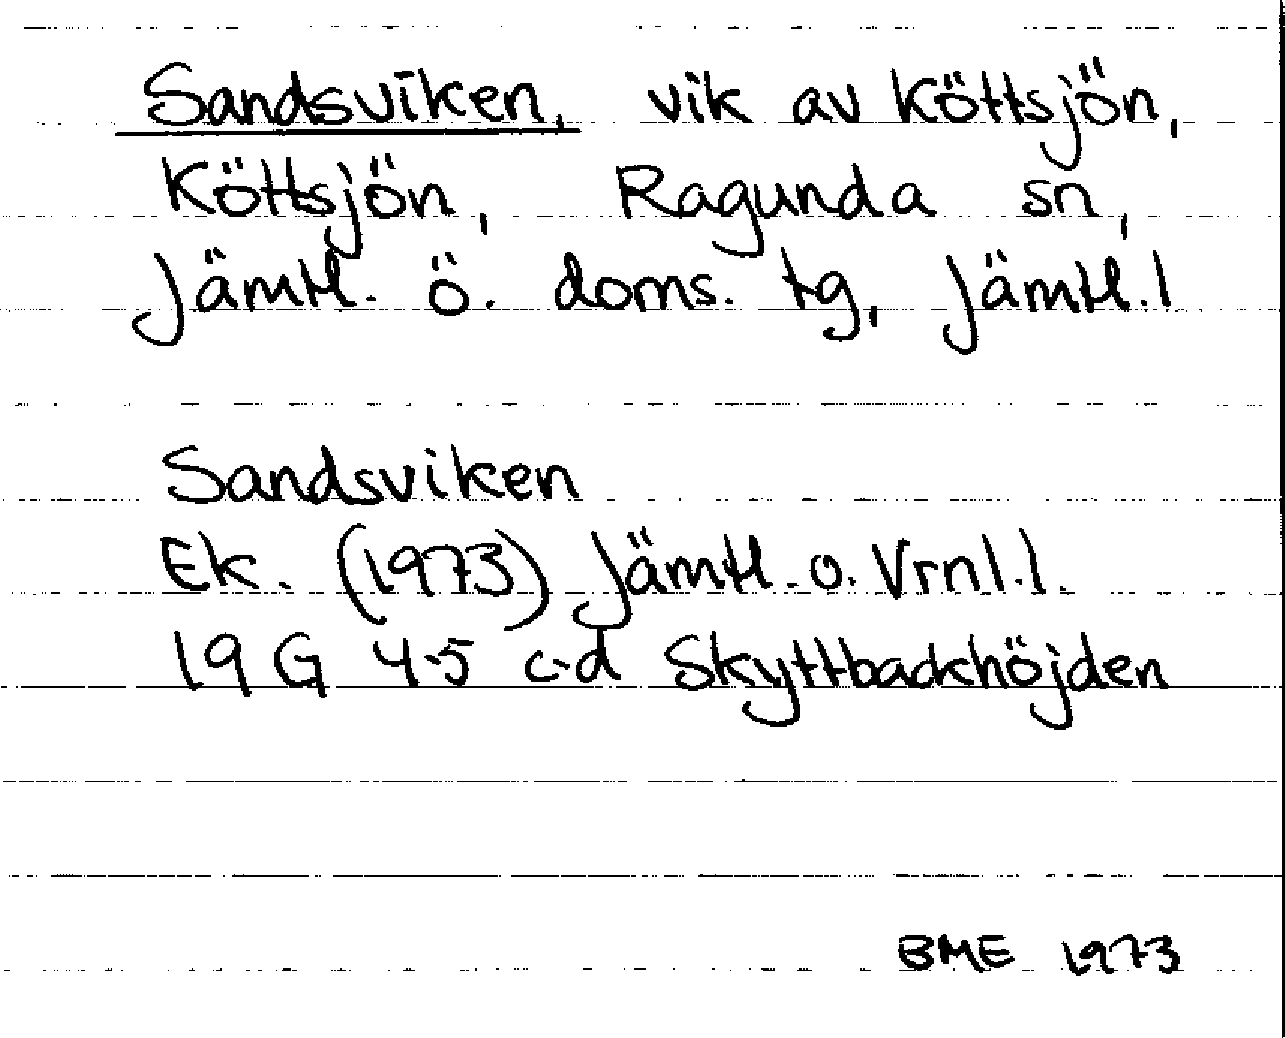 Sandsviken, vik av Köttsjön,
Köttsjön, Ragunda sn,
Jämtl. ö. doms. tg, Jämtl. l
Sandsviken
Ek. (1973) Jämtl. o. Vrnl. l.
19 G 4-5 c-d Skyttbackhöjden
BME 1973